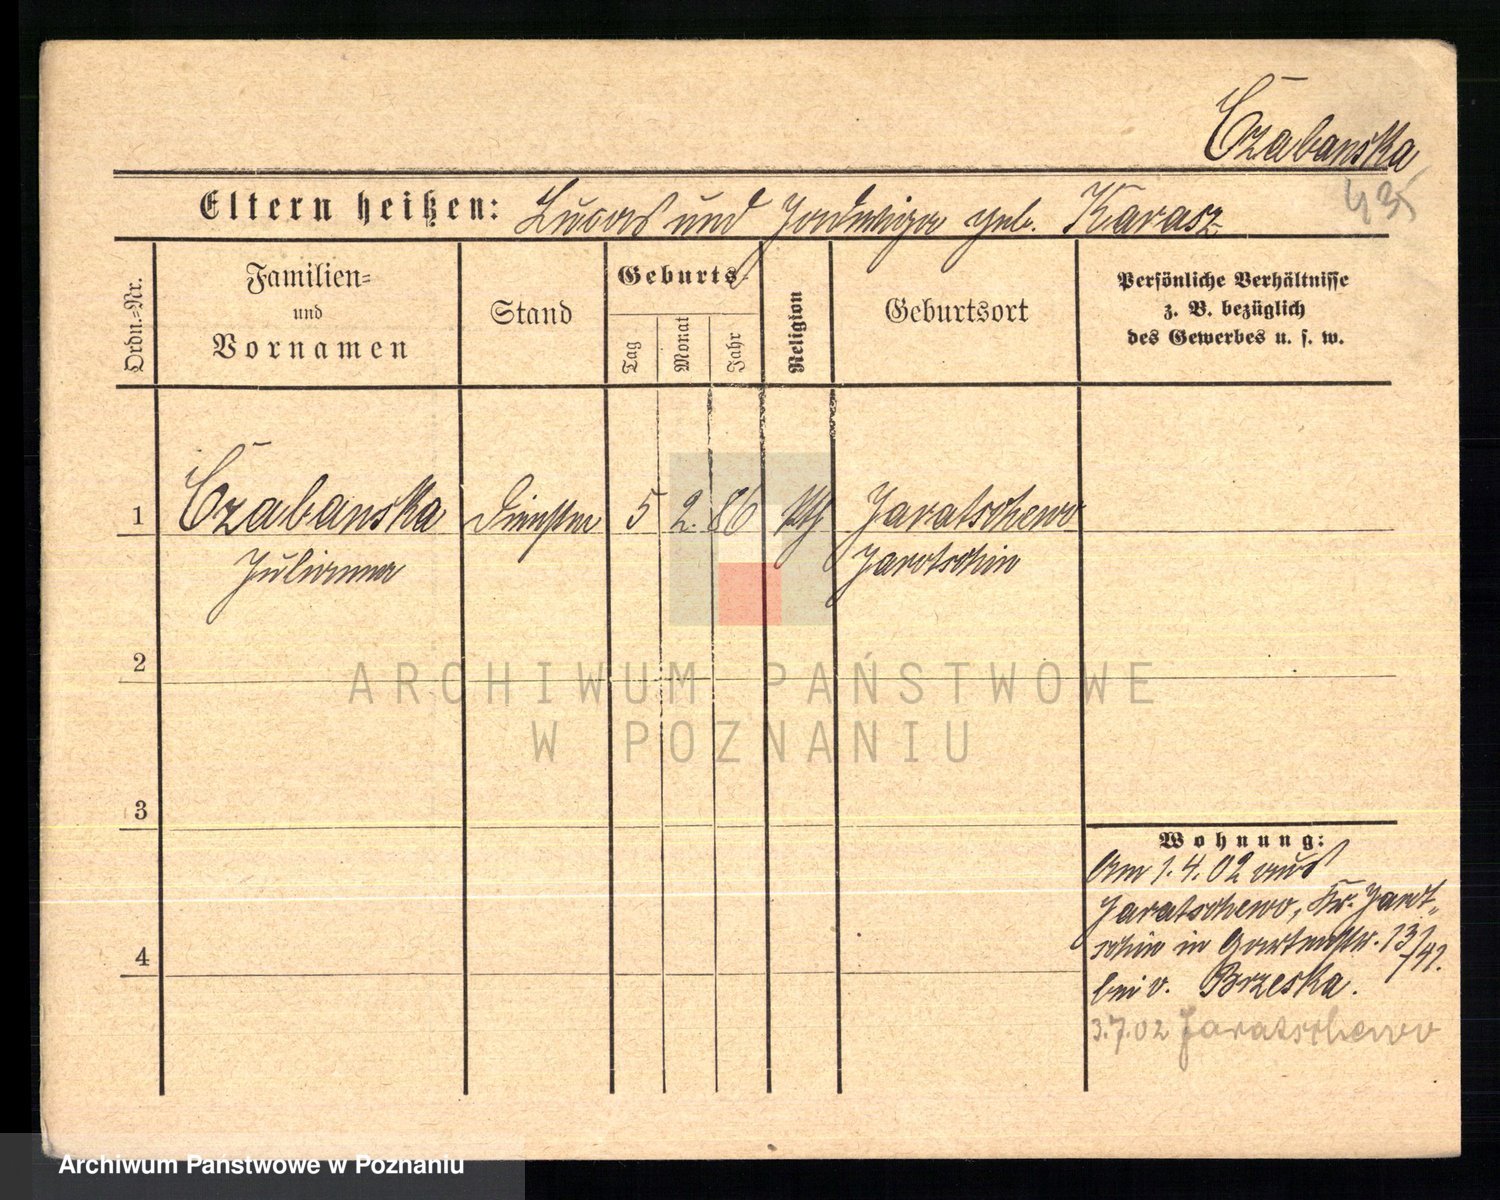 Czabanska
435
Eltern heißen: Lucas und Jadwiga geb. Karasz
Ordn.-Nr.
Familien-
und
Vornamen
Stand
Geburts-
Tag
Monat
Jahr
Religion
Geburtsort
Persönliche Verhältnisse
z. B. bezüglich
des Gewerbes u. s. w.
1 Czabanska 5 2. 86 kth Jaratschewo
Julianna Jarotschin
2
ARCHIWUM PAŃSTWOWE
W POZNANIU
3
Wohnung:
Am 1.4.02 aus
Jaratschewo, Kr. Jarot-
schin in Gartenstr. 13/
bei v. Brzeska.
4
3.7.02 Jaratschewo
Archiwum Państwowe w Poznaniu